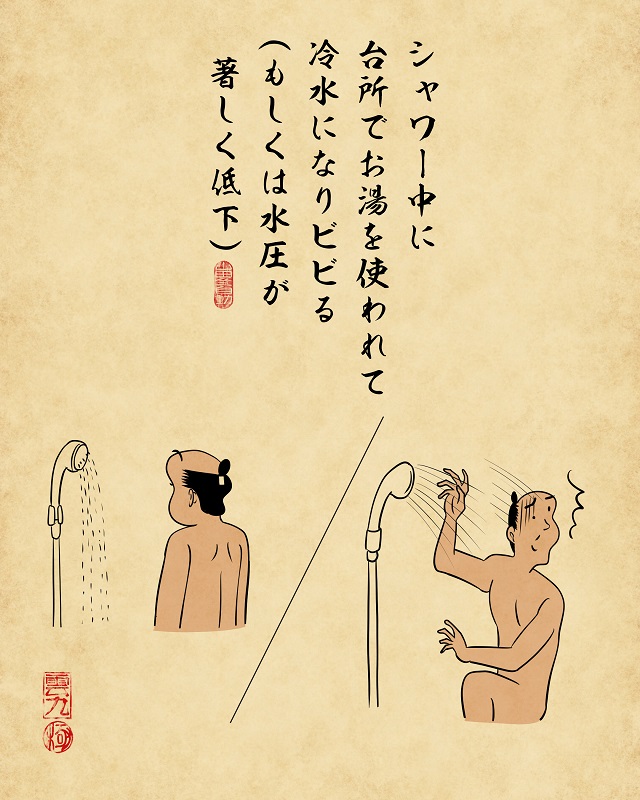 シャワー中に
台所でお湯を使われて
冷水になりビビる
（もしくは水圧が
著しく低下）